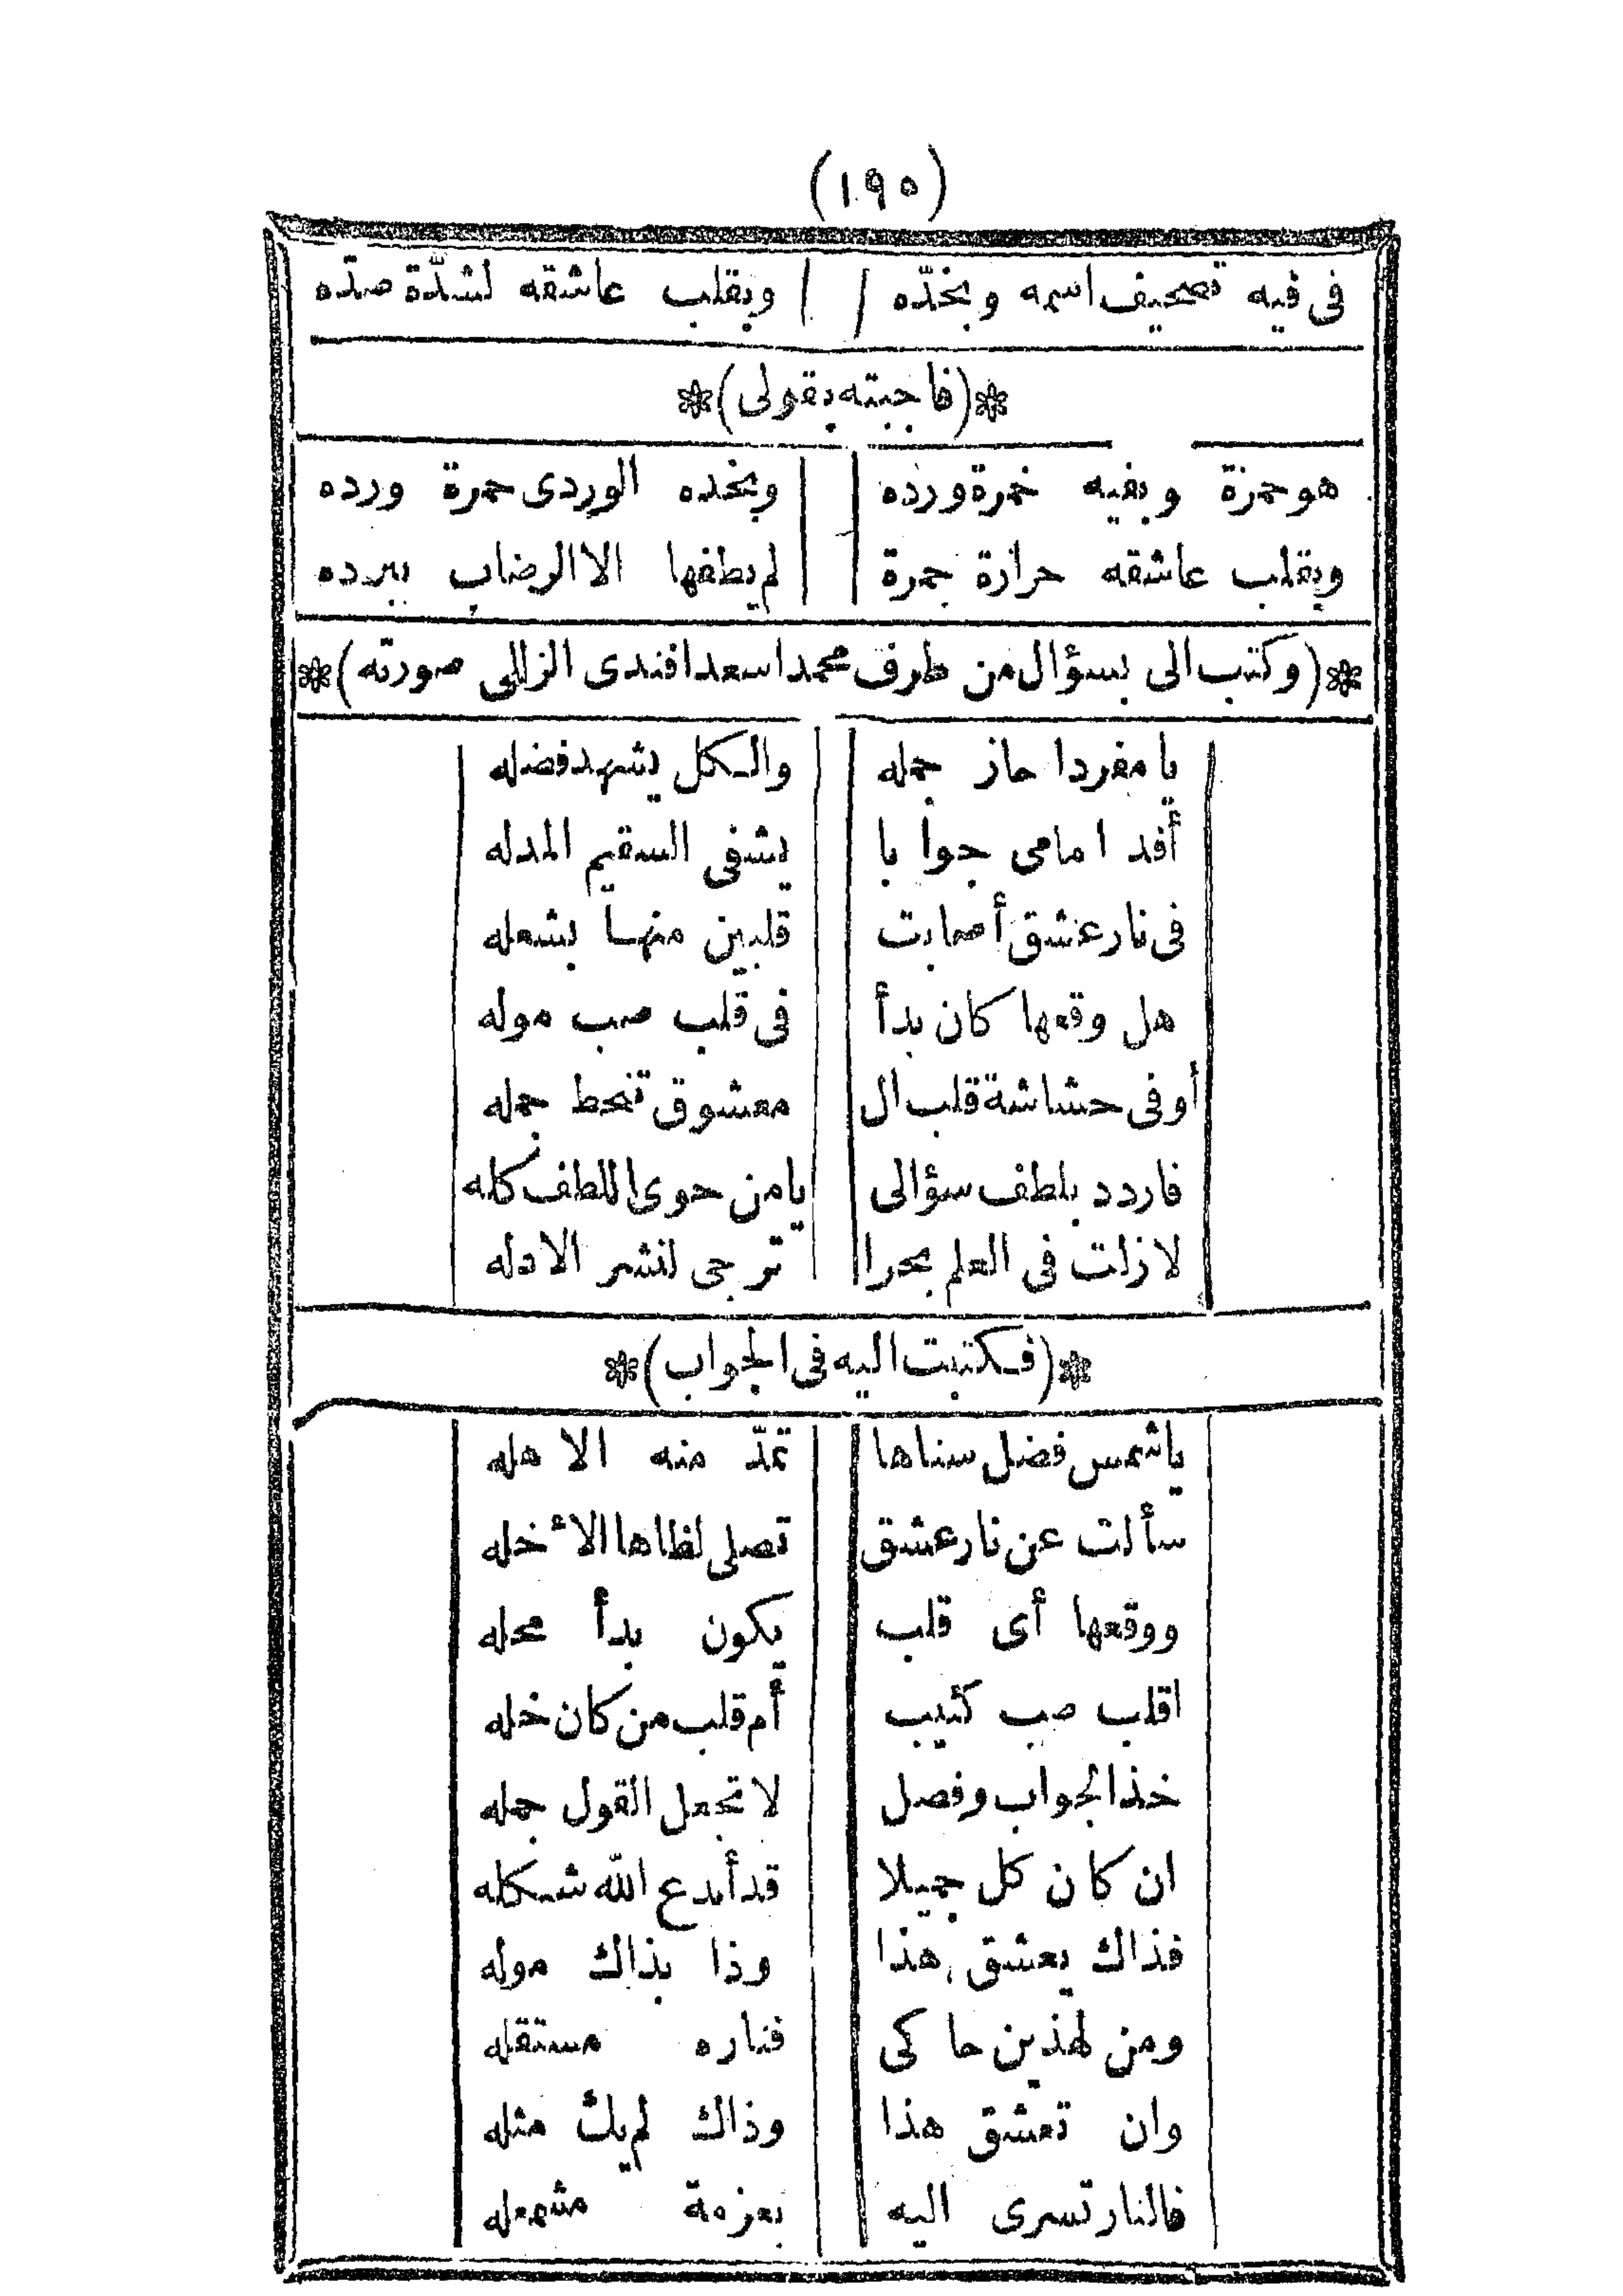 (١٩٥)
فى فيه تصحيف اسمه وبخدّه وبقلب عاشقه لشدّة صدّه
(فاجبته بقولى)
هو حمزة وبفيه خمرة ورده وبخده الوردى حمرة ورده
وبقلب عاشقه حرارة جمرة لم يطفها الا الرضاب ببرده
(وكتب الى بسؤال من طرف محمد اسعد افندى الزللى صورته)
يا مفردا حاز جمله والكل يشهد فضله
أفد امامى جوابا يشفى السقيم المدله
فى نار عشق أصابت قلبين منها بشعله
هل وقعها كان بدأ فى قلب صب موله
أو فى حشاشة قلب ال معشوق تنحط جمله
فاردد بلطف سؤالى يا من حوى اللطف كله
لا زلت فى العلم بحرا ترجى لنشر الادله
(فكتبت اليه فى الجواب)
يا شمس فضل سناها تمدّ منه الاهله
سألت عن نار عشق تصلى لظاها الأخله
ووقعها أى قلب يكون بدأ محله
اقلب صب كئيب أم قلب من كان خله
خذ الجواب وفصل لا تجعل القول جمله
ان كان كل جميلا قد أبدع الله شكله
فذاك يعشق هذا وذا بذاك موله
ومن لهذين حاكى فناره مستقله
وان تعشق هذا وذاك لم يك مثله
فالنار تسرى اليه بعزمة مشمعله